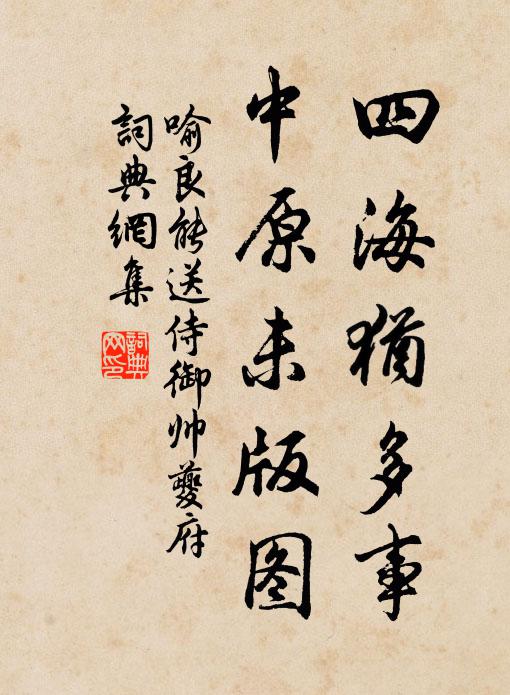 四海猶多事
中原未版图
喻良能送侍御帅夔府
詞典網集
詞典网印